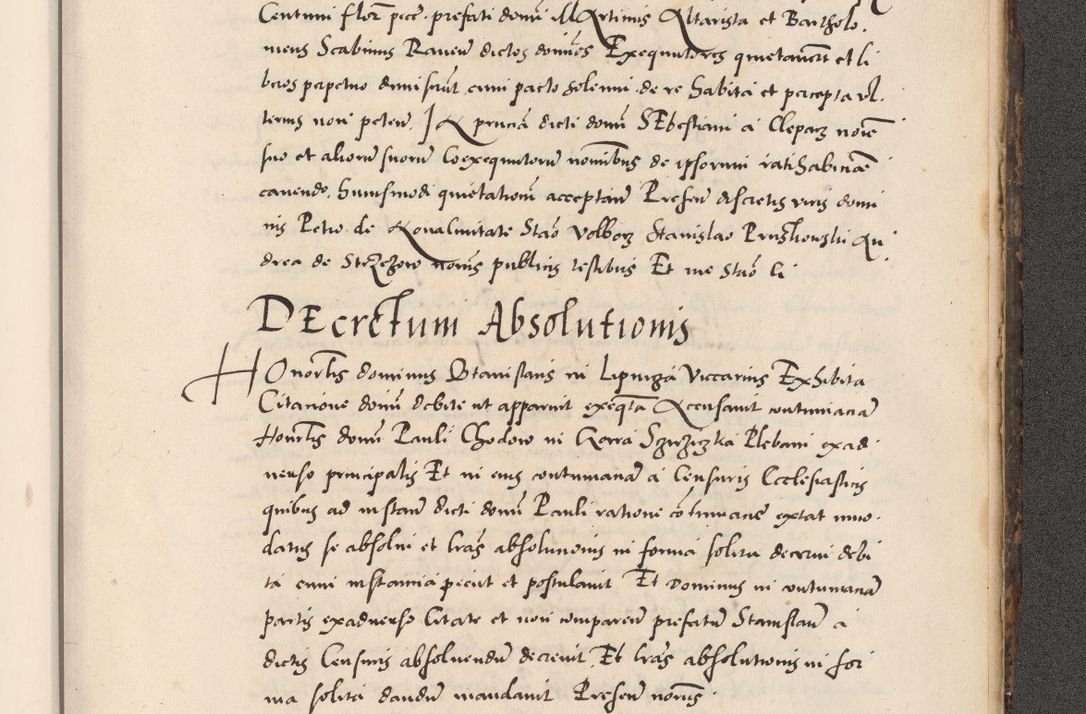 Centum flor pcc. prefati domi Martinus Altarista et Bartholo.
meus Scabinus Raven dictos dominos Exequutores quietaverunt et li
beros perpetuo dimiserut cum pacto solenni de re habita et percepta vl.
terius non peten. In prncia dicti domi SEbestiani a Clepary noie
suo et aliorum suorum Coexequutorum nominibus de ipsorum ratihabitane
cavendo. huiusmodi quietationem acceptan Presen discretis viris domi
nis Petro de Stao Volborz Stanislao Pruszkowski An
drea de Strzezow notariis publicis testibus Et me Stao Li
DEcretum Absolutionis
HOnorabilis dominus Stanislaus in Lipnicza Viccarius Exhibita
Citatione domi debite ut apparuit exeqta Accusavit contumaciam
Honorlis domi Pauli Chodow in Gorra Plebani exad
verso principalis Et in eius contumaciam a Censuris Ecclesiasticis
quibus ad instan dicti domi Pauli ratione contumacie extat inno
datus se absolvi et lras absolutionis in forma solita decerni debi
ta cum instancia peciit et postulavit Et Dominus in contumaciam
partis exadverso Citate et non comparen prefatum Stanislaum a
dictis Censuris absolvendum decrevit Et lras absolutionis in for
ma solita dandum mandavit Presen notariis